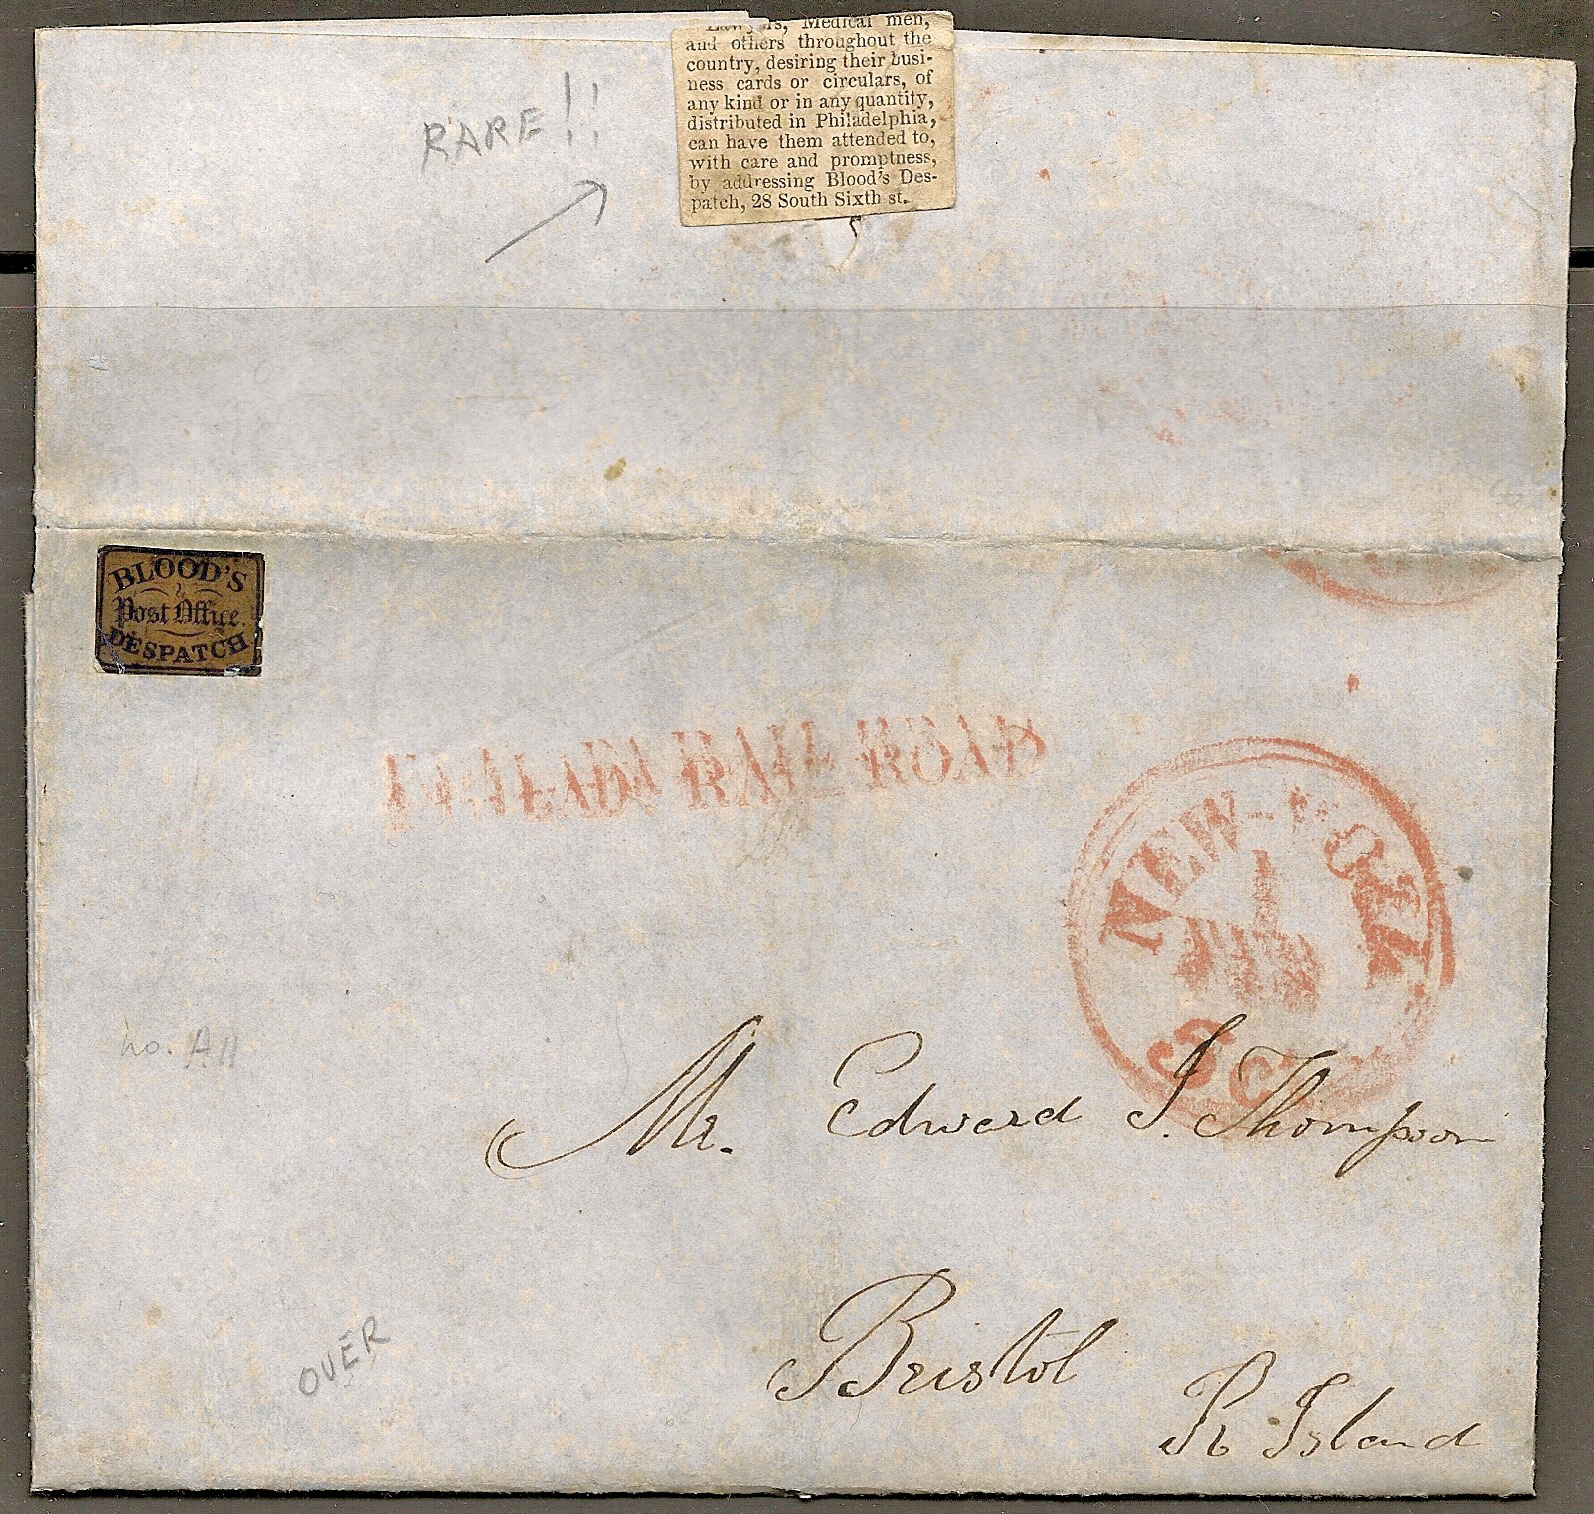 Lawyers, Medical men,
and others throughout the
country, desiring their busi-
ness cards or circulars, of
any kind or in any quantity,
distributed in Philadelphia,
can have them attended to,
with care and promptness,
by addressing Blood's Des-
patch, 28 South Sixth st.
RARE!!
BLOOD'S
Post Office
DESPATCH
RAIL ROAD
NEW-YORK
1
no. A11
Mr. Edward J. Thompson
Bristol
R Island
OVER